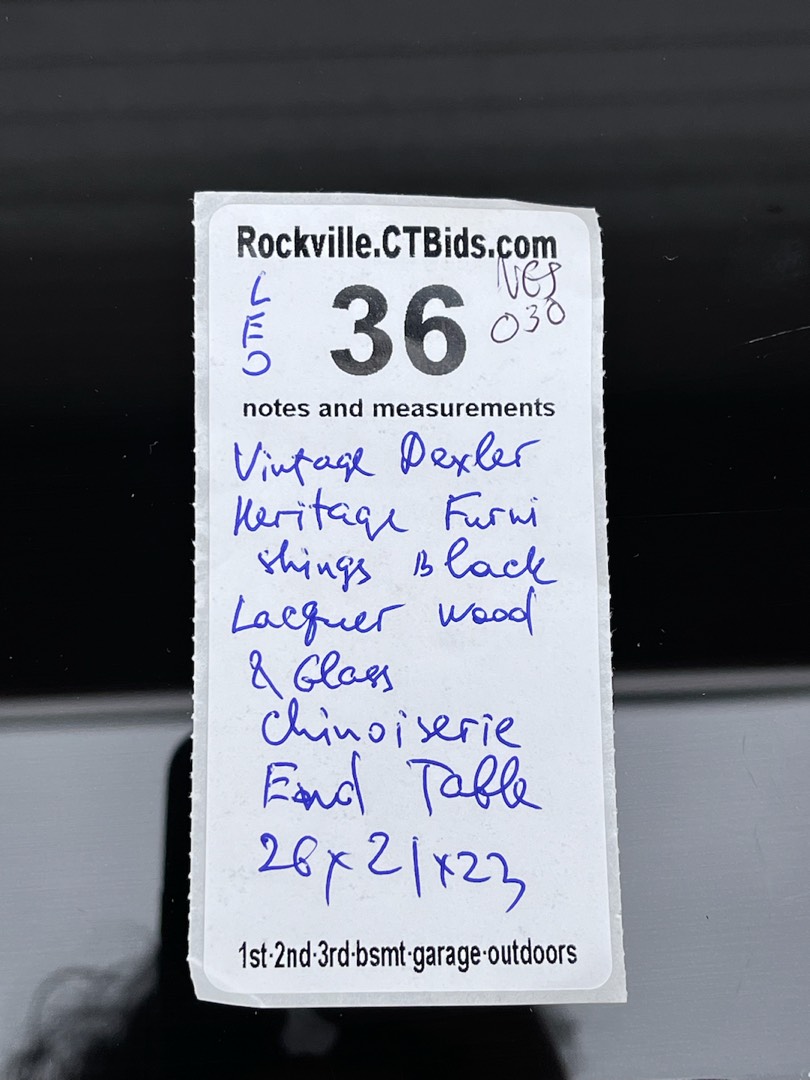 Rockville.CTBids.com
LEO
36
030
notes and measurements
Vintage Dexler
Heritage Furni
shings Black
Lacquer wood
& Glass
Chinoiserie
End Table
26x21x23
1st·2nd·3rd·bsmt·garage·outdoors